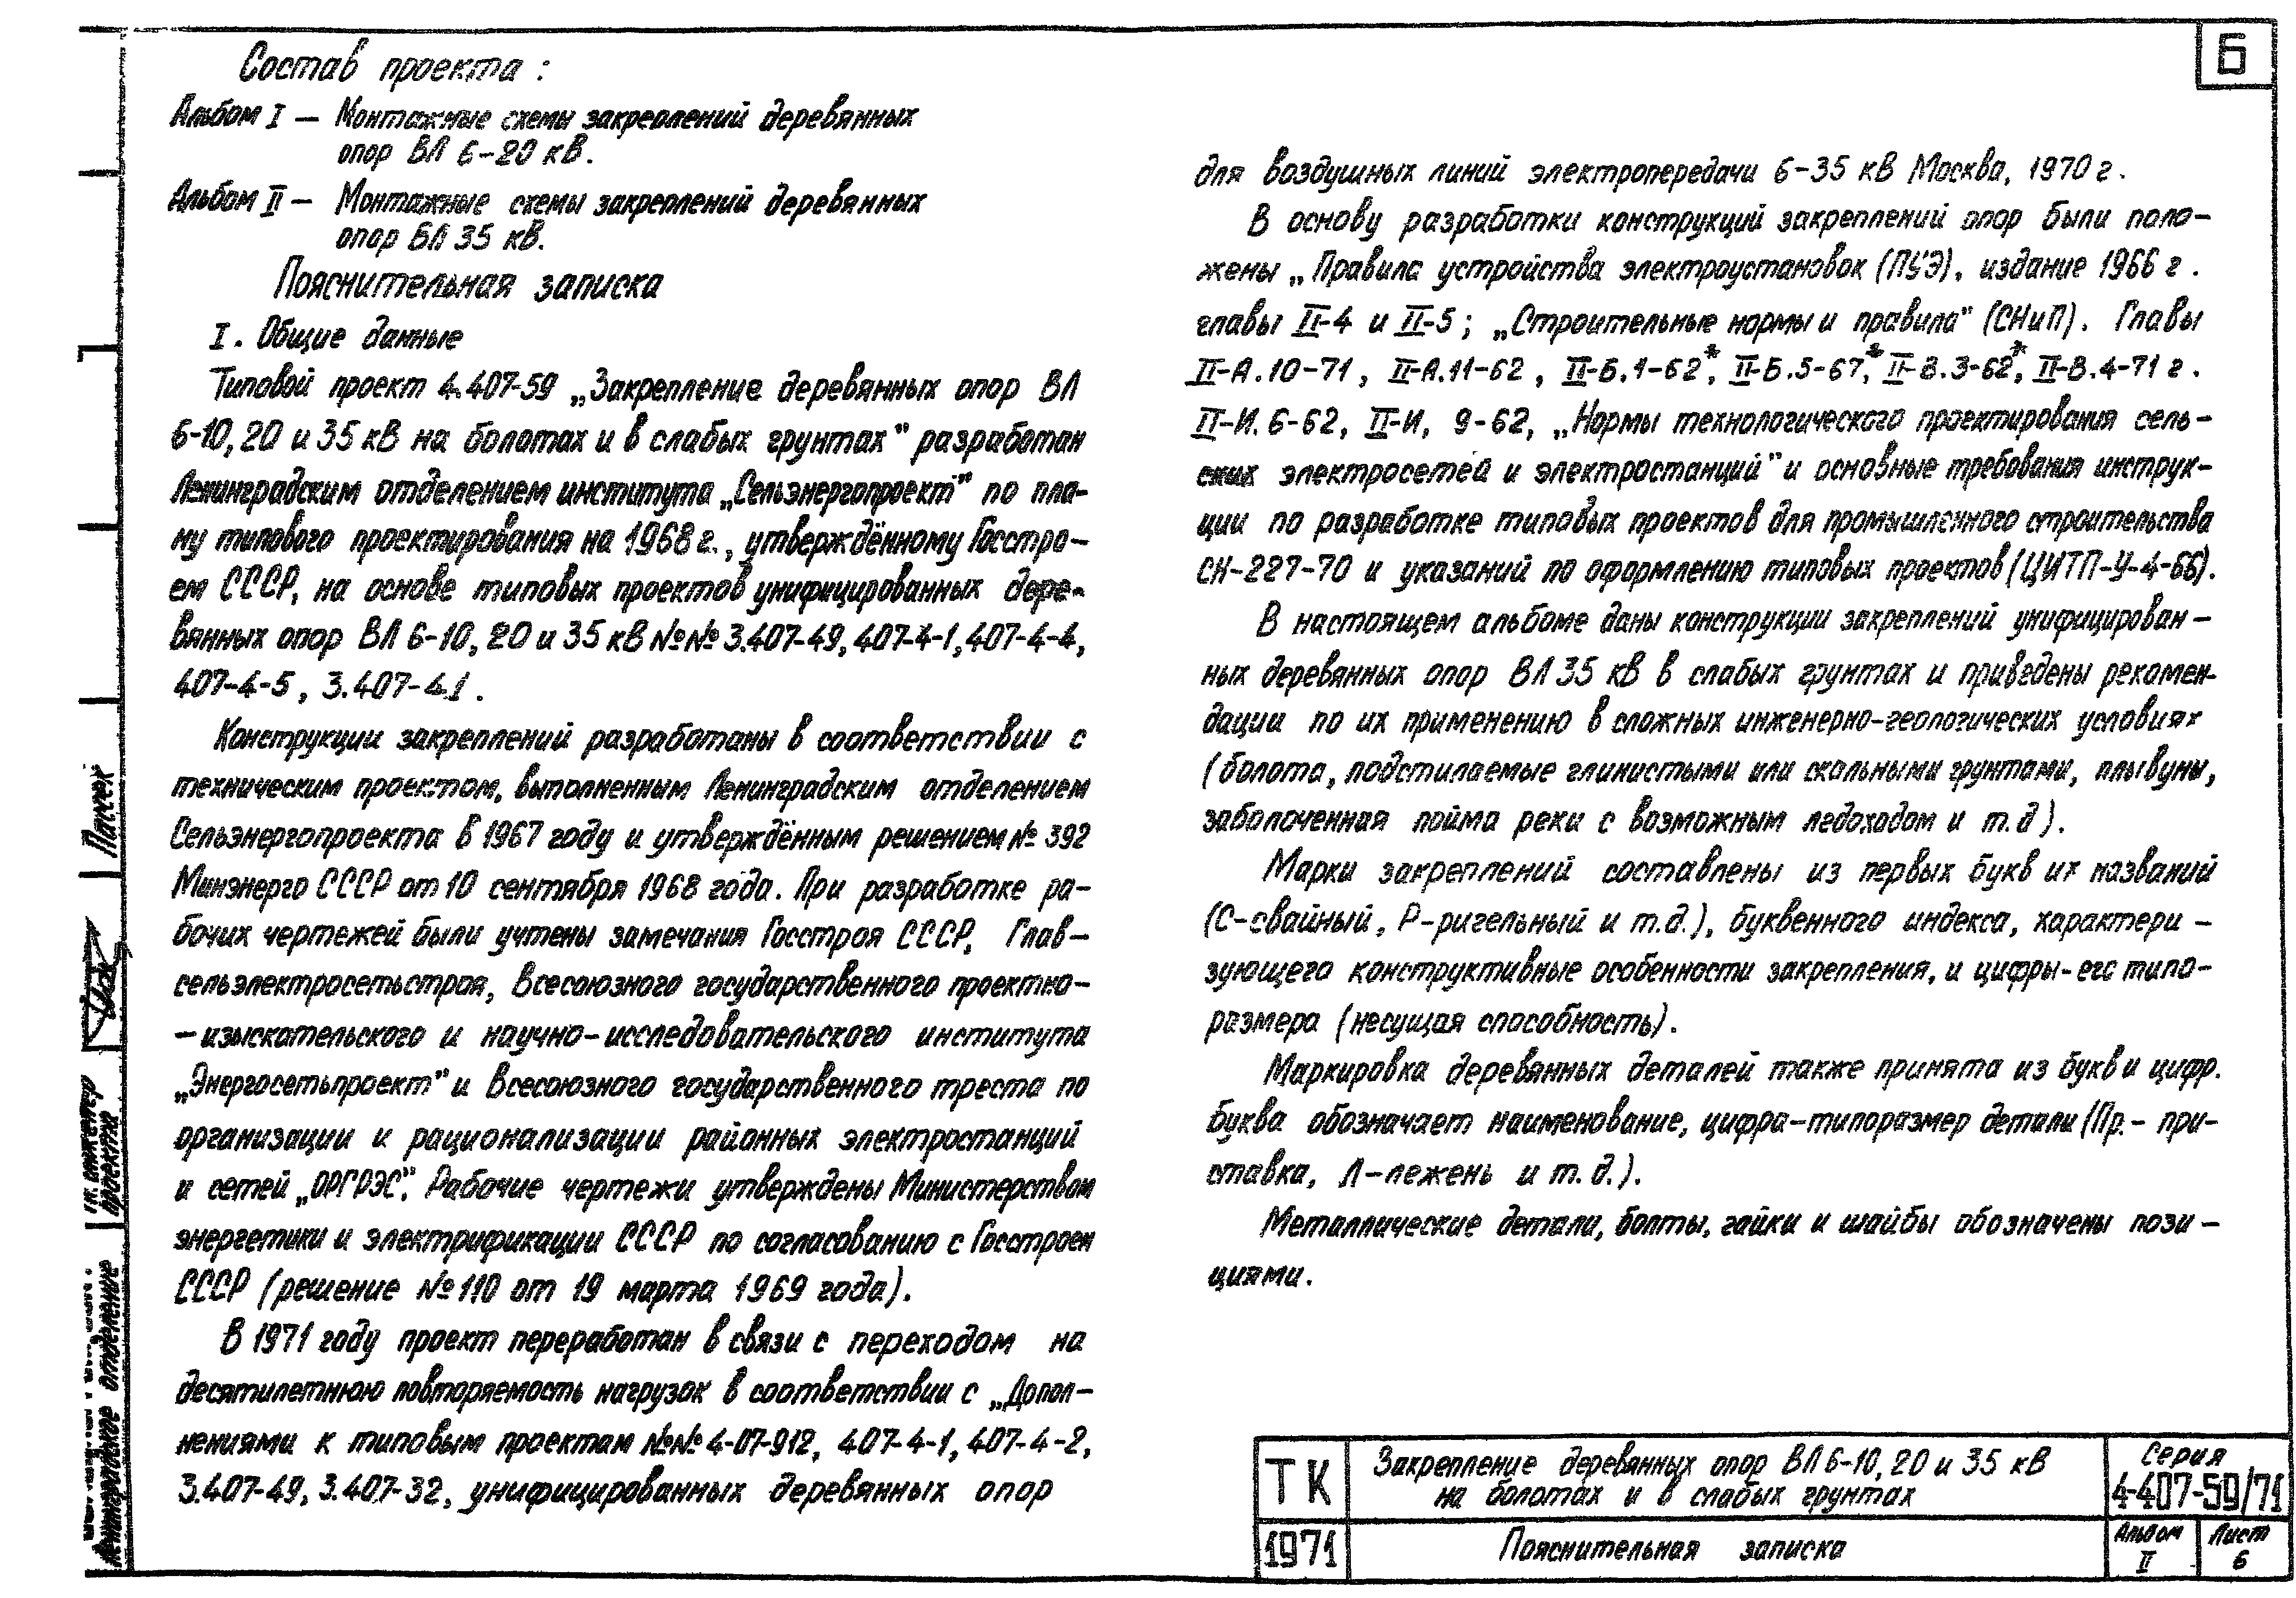 6
Состав проекта:
Альбом I — Монтажные схемы закреплений деревянных
опор ВЛ 6-20 кВ.
Альбом II — Монтажные схемы закреплений деревянных
опор ВЛ 35 кВ.
Пояснительная записка
I. Общие данные
Типовой проект 4.407-59 „Закрепление деревянных опор ВЛ
6-10, 20 и 35 кВ на болотах и в слабых грунтах" разработан
Ленинградским отделением института „Сельэнергопроект" по пла-
ну типового проектирования на 1968 г., утверждённому Госстро-
ем СССР, на основе типовых проектов унифицированных дере-
вянных опор ВЛ 6-10, 20 и 35 кВ №№ 3.407-49, 407-4-1, 407-4-4,
407-4-5, 3.407-41.
Конструкции закреплений разработаны в соответствии с
техническим проектом, выполненным Ленинградским отделением
Сельэнергопроекта в 1967 году и утверждённым решением № 392
Минэнерго СССР от 10 сентября 1968 года. При разработке ра-
бочих чертежей были учтены замечания Госстроя СССР, Глав-
сельэлектросетьстроя, Всесоюзного государственного проектно-
-изыскательского и научно-исследовательского института
„Энергосетьпроект" и Всесоюзного государственного треста по
организации и рационализации районных электростанций
и сетей „ОРГРЭС". Рабочие чертежи утверждены Министерством
энергетики и электрификации СССР по согласованию с Госстроем
СССР (решение № 110 от 19 марта 1969 года).
В 1971 году проект переработан в связи с переходом на
десятилетнюю повторяемость нагрузок в соответствии с „Допол-
нениями к типовым проектам №№ 4-07-912, 407-4-1, 407-4-2,
3.407-49, 3.407-32, унифицированных деревянных опор
для воздушных линий электропередачи 6-35 кВ Москва, 1970 г.
В основу разработки конструкций закреплений опор были поло-
жены „Правила устройства электроустановок (ПУЭ), издание 1966 г.
главы II-4 и II-5; „Строительные нормы и правила" (СНиП). Главы
II-А.10-71, II-А.11-62, II-Б.1-62*, II-Б.5-67*, II-В.3-62*, II-В.4-71 г.
II-И.6-62, II-И, 9-62, „Нормы технологического проектирования сель-
ских электросетей и электростанций" и основные требования инструк-
ции по разработке типовых проектов для промышленного строительства
СН-227-70 и указаний по оформлению типовых проектов (ЦИТП-У-4-66).
В настоящем альбоме даны конструкции закреплений унифицирован-
ных деревянных опор ВЛ 35 кВ в слабых грунтах и приведены рекомен-
дации по их применению в сложных инженерно-геологических условиях
(болота, подстилаемые глинистыми или скальными грунтами, плывуны,
заболоченная пойма реки с возможным ледоходом и т.д).
Марки закреплений составлены из первых букв их названий
(С-свайный, Р-ригельный и т.д.), буквенного индекса, характери-
зующего конструктивные особенности закрепления, и цифры-его типо-
размера (несущая способность).
Маркировка деревянных деталей также принята из букв и цифр.
Буква обозначает наименование, цифра-типоразмер детали (Пр.- при-
ставка, Л-лежень и т.д.).
Металлические детали, болты, гайки и шайбы обозначены пози-
циями.
Ленинградское отделение
Гл. инженер
проекта
Пассек
ТК
1971
Закрепление деревянных опор ВЛ 6-10, 20 и 35 кВ
на болотах и в слабых грунтах
Пояснительная записка
Серия
4-407-59/71
Альбом
II
Лист
6